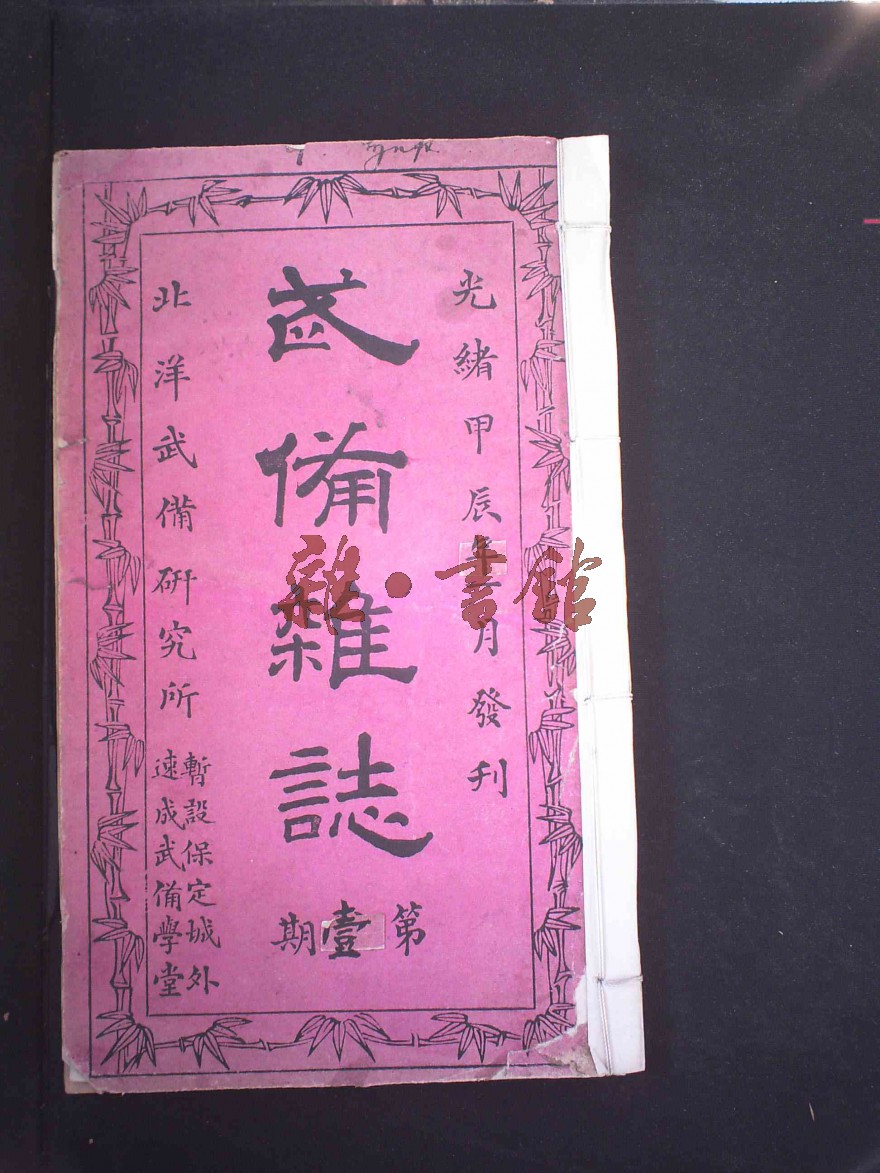 光緒甲辰年 月發刋
武備雜誌
第壹期
北洋武備研究所
暫設保定城外
速成武備學堂
雜·書館